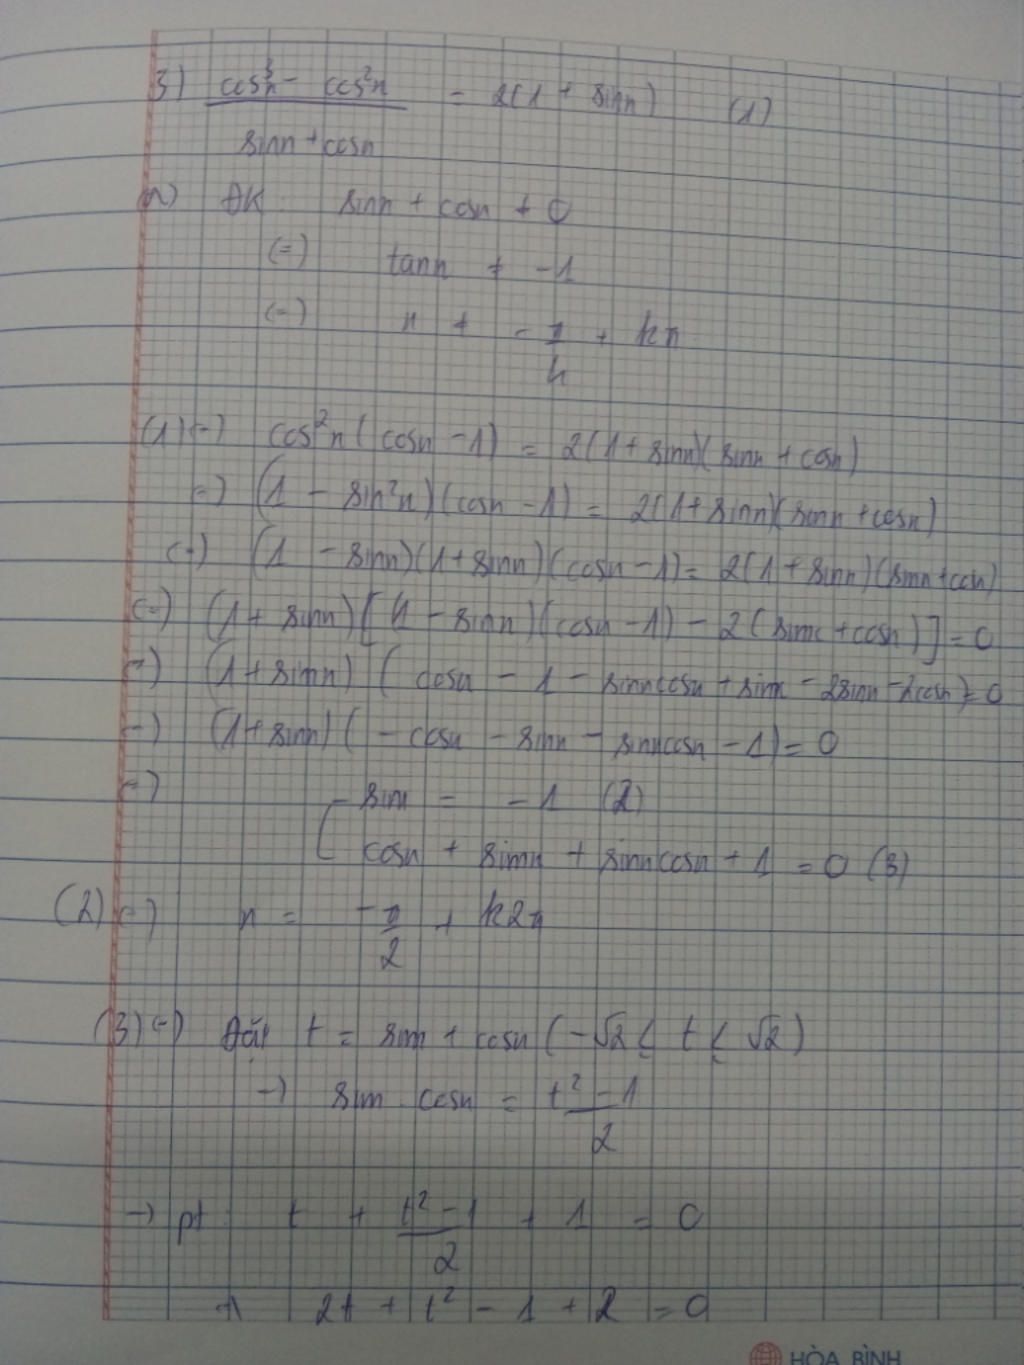 3) cos³x - cos²x / sinx + cosx = 2(1 + sinx) (1)
a) ĐK: sinx + cosx ≠ 0
(=) tanx ≠ -1
(=) x ≠ -π/4 + kπ
(1) (=) cos²x (cosx - 1) = 2(1 + sinx)(sinx + cosx)
(=) (1 - sin²x)(cosx - 1) = 2(1 + sinx)(sinx + cosx)
(=) (1 - sinx)(1 + sinx)(cosx - 1) = 2(1 + sinx)(sinx + cosx)
(=) (1 + sinx)[(1 - sinx)(cosx - 1) - 2(sinx + cosx)] = 0
(=) (1 + sinx)(cosx - 1 - sinxcosx + sinx - 2sinx - 2cosx) = 0
(=) (1 + sinx)(- cosx - sinx - sinxcosx - 1) = 0
(=) [ sinx = -1 (2)
cosx + sinx + sinxcosx + 1 = 0 (3)
(2) (=) x = -π/2 + k2π
(3) (=) Đặt t = sinx + cosx (-√2 ≤ t ≤ √2)
→) sinx . cosx = t² - 1 / 2
→) pt: t + t² - 1 / 2 + 1 = 0
→) 2t + t² - 1 + 2 = 0
HÒA BÌNH